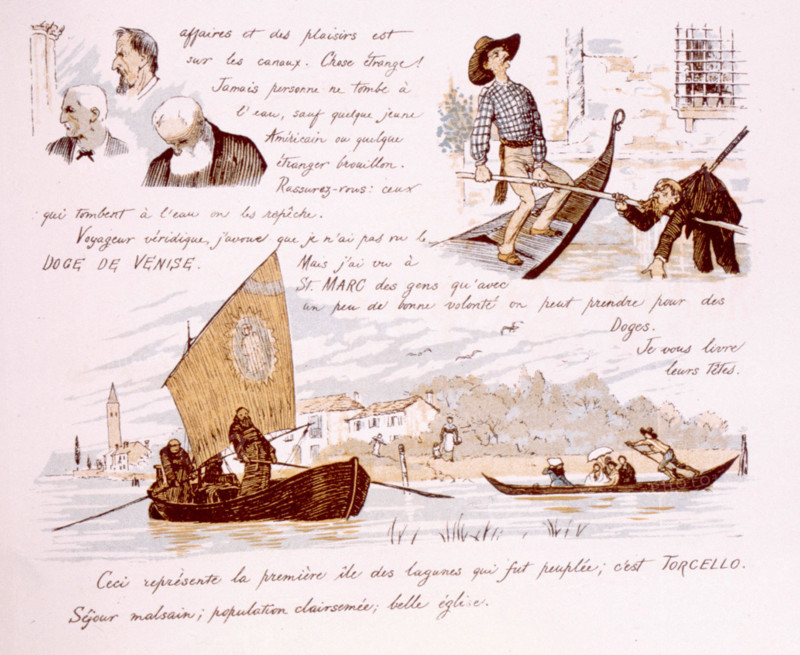 affaires et des plaisirs est
sur les canaux. Chose étrange!
Jamais personne ne tombe à
l'eau, sauf quelque jeune
Américain ou quelque
étranger brouillon.
Rassurez-vous: ceux
qui tombent à l'eau on les repêche.
Voyageur véridique, j'avoue que je n'ai pas vu le
DOGE DE VENISE. Mais j'ai vu à
St. MARC des gens qu'avec
un peu de bonne volonté on peut prendre pour des
Doges.
Je vous livre
leurs têtes.
Ceci représente la première île des lagunes qui fut peuplée; c'est TORCELLO.
Séjour malsain; population clairsemée; belle église.